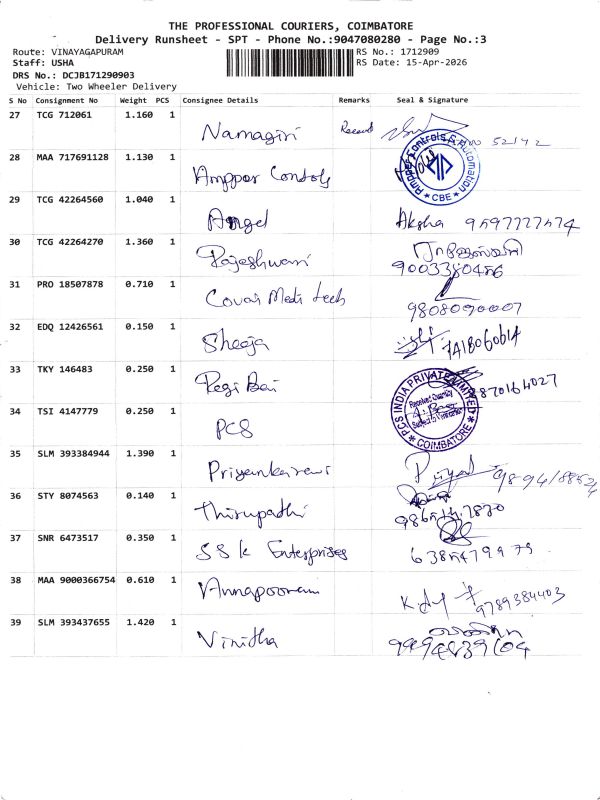 THE PROFESSIONAL COURIERS, COIMBATORE
Delivery Runsheet - SPT - Phone No.:9047080280 - Page No.:3
Route: VINAYAGAPURAM RS No.: 1712909
Staff: USHA RS Date: 15-Apr-2026
DRS No.: DCJB171290903
Vehicle: Two Wheeler Delivery
S No Consignment No Weight PCS Consignee Details Remarks Seal & Signature
27 TCG 712061 1.160 1
Namagiri
28 MAA 717691128 1.130 1
Amppar Controls & Automation
CBE
29 TCG 42264560 1.040 1
Angel Aksha 9597777574
30 TCG 42264270 1.360 1
Rajeshwari
9003380456
31 PRO 18507878 0.710 1
Covai Medi tech
9808090007
32 EDQ 12426561 0.150 1
Sheeja
33 TKY 146483 0.250 1
Regi Bai
PCS INDIA PRIVATE LIMITED
COIMBATORE
34 TSI 4147779 0.250 1
PCS
35 SLM 393384944 1.390 1
36 STY 8074563 0.140 1
Thirupathi
37 SNR 6473517 0.350 1
SSK Enterprises
38 MAA 9000366754 0.610 1
Annapoorani 9789384403
39 SLM 393437655 1.420 1
Vinitha